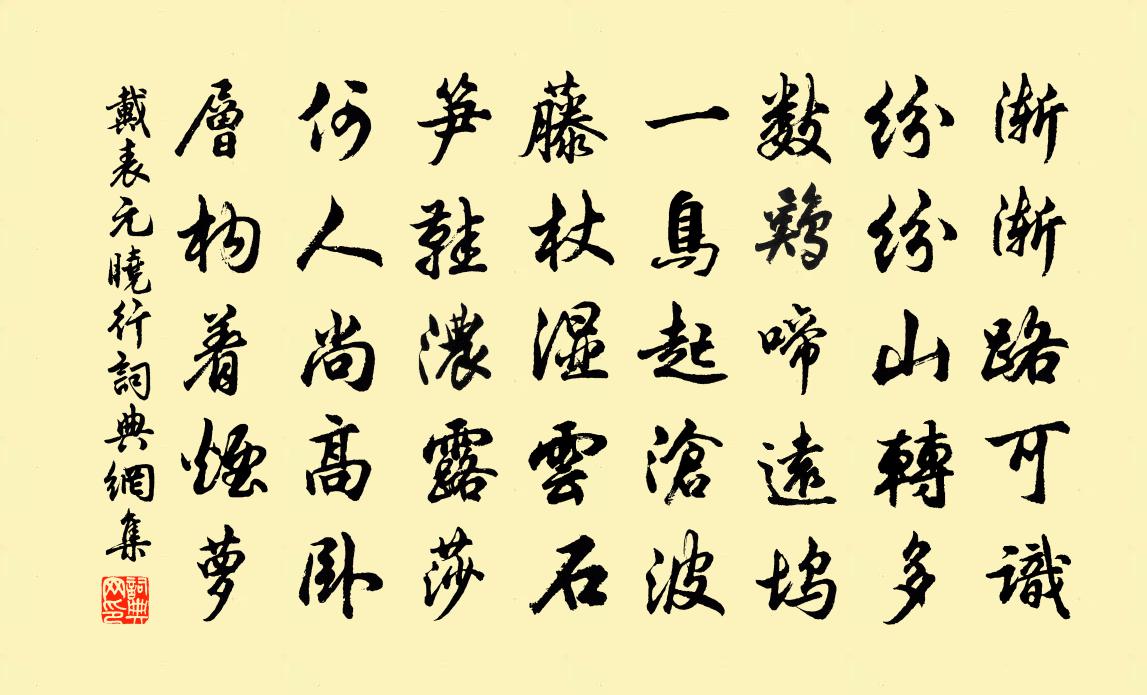 渐渐路可識
纷纷山轉多
数鷄啼遠塢
一鳥起滄波
藤杖湿雲石
笋鞋濃露莎
何人尚高卧
層构着煙萝
戴表元曉行詞典網集
詞典網印